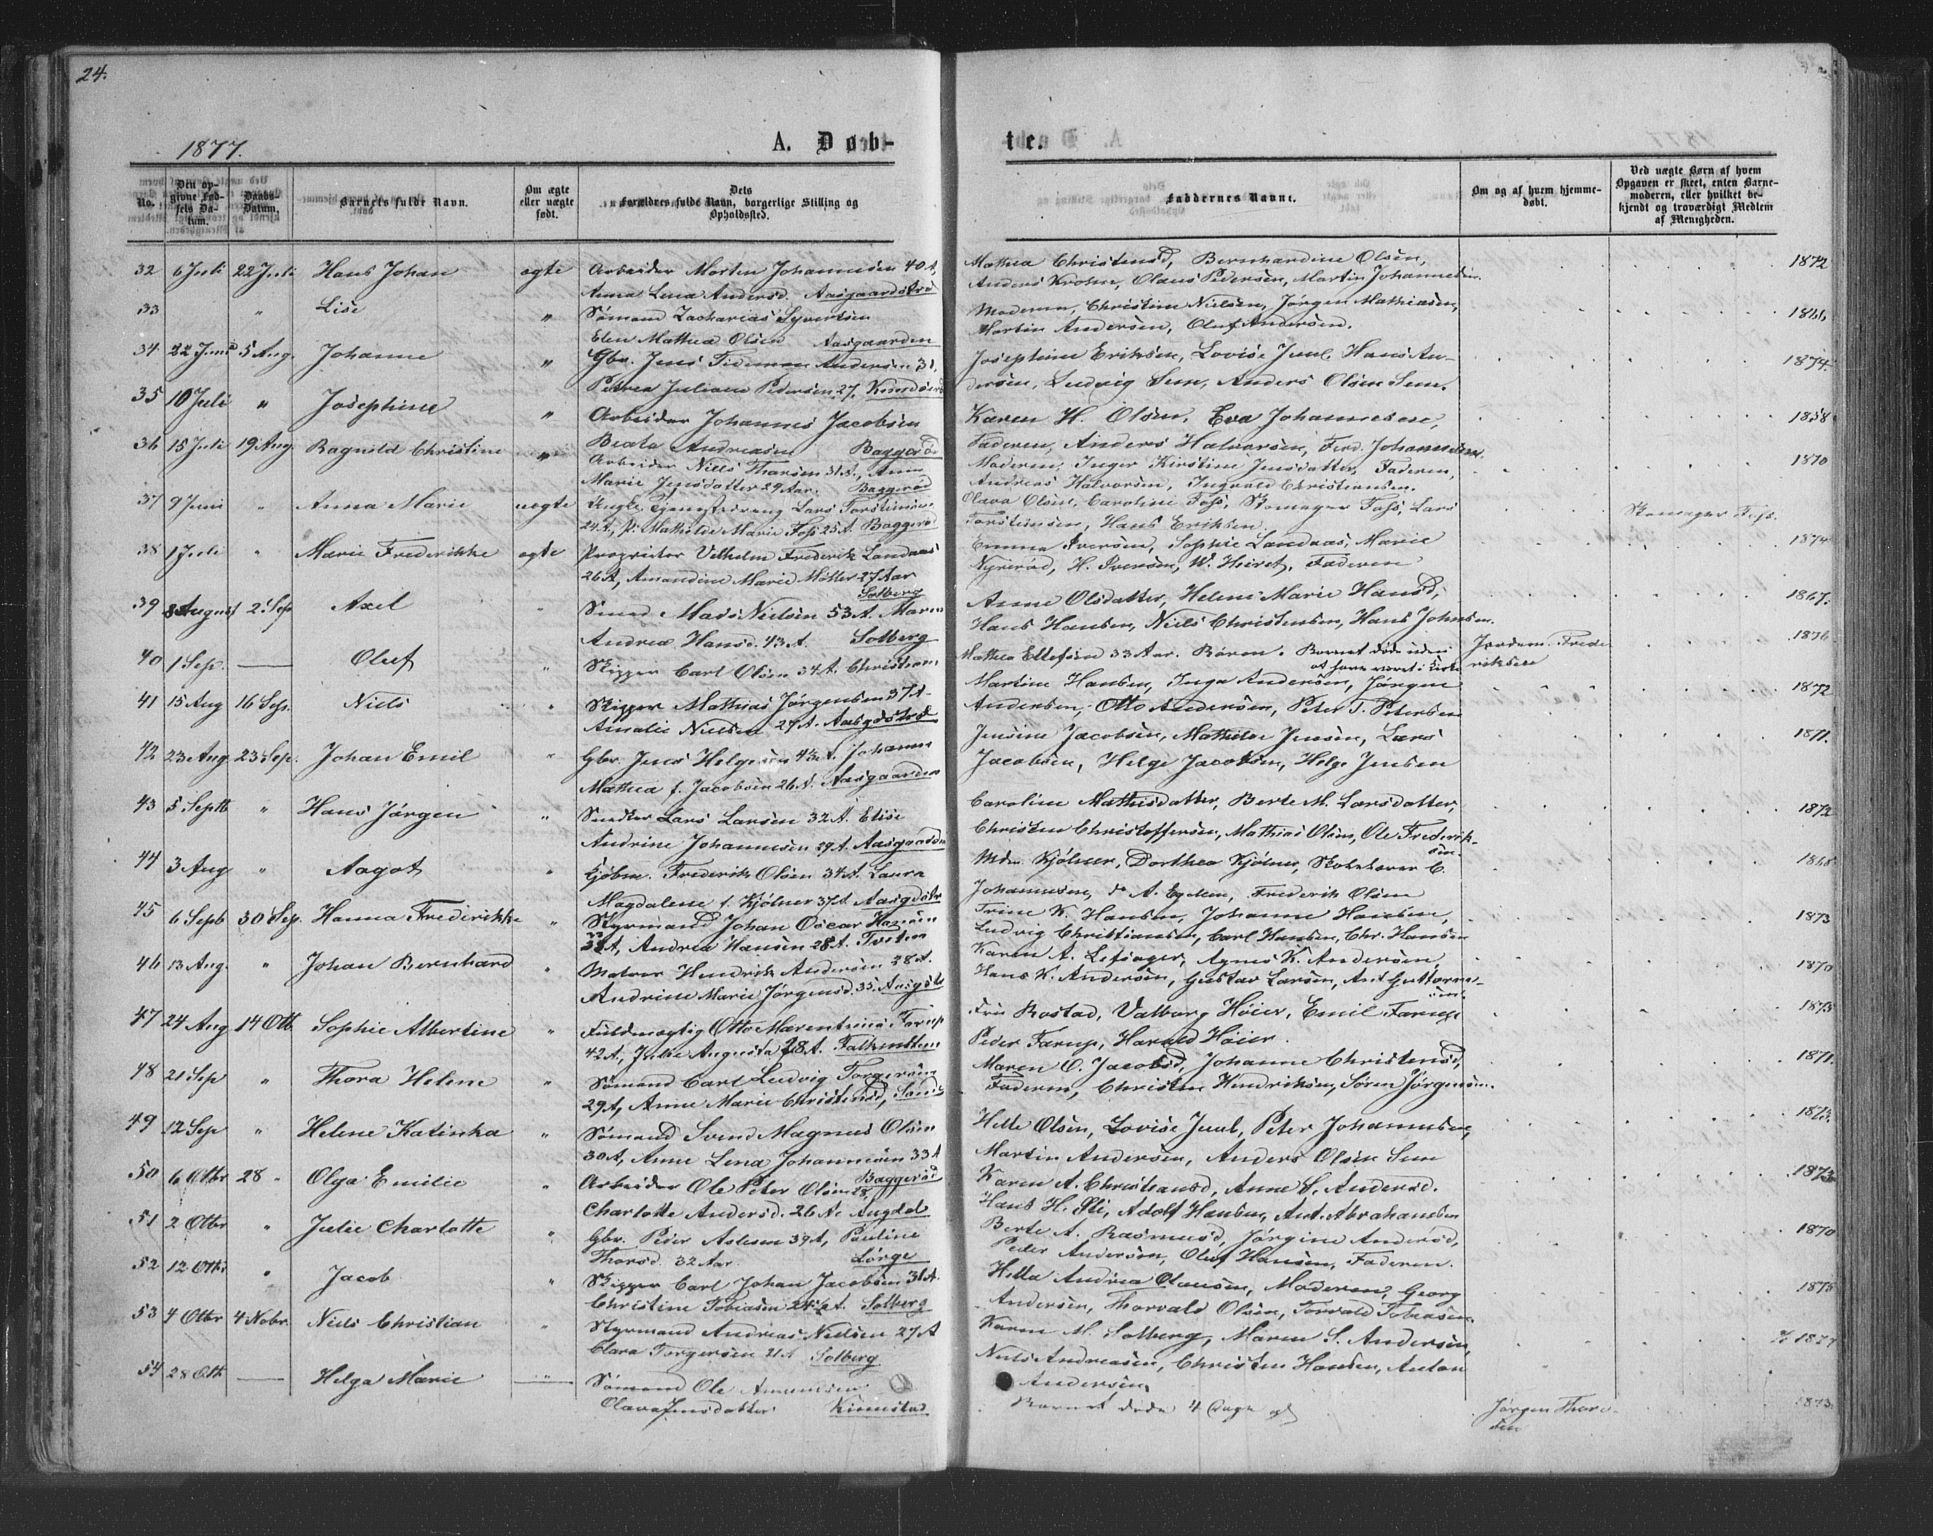 24.
1877.
A. Døb-
te.
No.
Den op-
givne Fød-
sels Da-
tum.
Daabs-
Datum.
Barnets fulde Navn.
Om ægte
eller uægte
født.
Dets
Forældres fulde Navn, borgerlige Stilling og
Opholdssted.
Faddernes Navne.
Om og af hvem hjemme-
døbt.
Ved uægte Børn af hvem
Opgaven er skeet, enten Barne-
moderen, eller hvilket be-
kjendt og troværdigt Medlem
af Menigheden.
32 6 Juli 22 Juli Hans Johan ægte Arbeider Morten Johannesen 40 A, Mathea Christensd, Bernhardine Olsen, 1872
Anna Lena Andersd. Aasgaardstrd Anders Krohn, Olaus Pedersen, Martin Johannesen.
33 " Lise " Sømand Zacharias Syvertsen Moderen, Christine Nielsen, Jørgen Mathiasen, 1866
Elen Mathea Olsen Aasgaarden Martin Andersen, Oluf Andersen.
34 22 Juni 5 Aug. Johanne " Gbr. Jens Andersen 31, Josephine Eriksen, Lovise Juul, Hans An- 1874.
Petrea Juliane Pedersen 27. dersen, Ludvig Sem, Anders Olsen Sem.
35 10 Juli " Josephine " Arbeider Johannes Jacobsen Karen H. Olsen, Eva Johannesen, 1858
Beate Andreasen Baggerød Faderen, Anders Halvorsen, Ferd. Johannesen
36 15 Juli 19 Aug. Ragnild Christine " Arbeider Niels Thorsen 31 A., Anne Moderen, Inger Kirstine Jensdatter, Faderen, 1870
Marie Jensdatter 29 Aar. Baggerød Andreas Halvorsen, Ingvald Christiansen.
37 9 Juni " Anna Marie uægte Ungk. Tjenestedreng Lars Torstensen Olava Olsen, Caroline Foss, Skomager Foss, Lars Skomager Foss.
24 A, P. Mathilde Marie Foss 25 A. Baggerød Torstensen, Hans Eriksen
38 1 Juli " Marie Frederikke ægte Proprietær Vilhelm Frederik Landaas Emma Iversen, Sophie Landaas, Marie 1874
26 A, Amandine Marie Møller 27 Aar Nyrerød, H. Iversen, W. Heiret, Faderen
Solberg
39 8 August 2 Sep. Axel Smed Mads Nielsen 53 A. Maren Anne Olsdatter, Helene Marie Hansd, 1867.
Andrea Hansd. 43 A. Solberg Hans Hansen, Niels Christensen, Hans Johnsen.
40 1 Sep. Oluf " Skipper Carl Olsen 34 A. Christiane Mathea Ellefsen 33 Aar. Børen. Barnet døde uden Jordem. Frede 1876
at have været i Kirke riksen
41 15 Aug 16 Sep. Niels " Skipper Mathias Jørgensen 37 A. Martine Hansen, Inga Andersen, Jørgen 1872
Amalie Nielsen 27 A. Aasgdstrd Andersen, Otto Andersen, Peter T. Petersen
42 23 Aug 23 Sep. Johan Emil " Gbr. Jens Helgesen 43 A. Johanne Jensine Jacobsen, Mathilde Jensen, Lars 1871.
Mathea f. Jacobsen 26 A. Aasgaarden Jacobsen, Helge Jacobsen, Helge Jensen
43 5 Septb " Hans Jørgen " Snedker Lars Larsen 32 A. Elise Caroline Mathisdatter, Berte M. Larsdatter, 1872
Andrine Johannesen 29 A. Aasgaarden Christen Christoffersen, Mathias Olsen, Ole Frederik-
sen.
44 3 Aug " Aagot " Kjøbm. Frederik Olsen 34 A. Laura Mdm. Kjølner, Dorthea Kjølner, Skoleholder C. 1868
Magdalene f. Kjølner 37 A Aasgdstr Johannesen, do A. Egelien, Frederik Olsen
45 6 Septb 30 Sep. Hanna Frederikke " Styrmand Johan Oscar Hansen Trine K. Hansen, Johanne Hansen, 1873
A, Andrea Hansen 28 A. Tveten Ludvig Christiansen, Carl Hansen, Chr. Hansen
46 13 Aug. " Johan Bernhard " Matros Hendrik Andersen 38 A. Karen A. Lefsager, Agnes K. Andersen, 1870
Andrine Marie Jørgensd. 35 Aasgdst Hans K. Andersen, Gustav Larsen, Ant. Guttorm-
sen.
47 24 Aug 14 Otb. Sophie Albertine " Fuldmægtig Otto Marentius Farup Fru Rostad, Valborg Høier, Emil Farup 1875
42 A, Julie Augusta 28 A. Falkensteen Peder Farup, Harald Høier.
48 21 Sep " Thora Helene " Sømand Carl Ludvig Torgersen Maren O. Jacobsd, Johanne Christensd, 1871.
29 A, Anne Marie Christensd, Faderen, Christen Hendriksen, Søren Jørgensen.
49 12 Sep " Helene Katinka " Sømand Svend Magnus Olsen Helle Olsen, Lovise Juul, Peter Johannesen, 1873.
30 A, Anne Lena Johannesen 33 A Martin Andersen, Anders Olsen Sem
Baggerød
50 6 Otbr 28 " Olga Emilie " Arbeider Ole Peter Olsen 28, Karen A. Christiansd, Anne C. Andersd. 1873
Charlotte Andersd. 26 A. Augdal Hans H. Sti, Adolf Hansen, Ant. Abrahamsen
51 2 Otbr " Julie Charlotte " Gbr. Peder Aslesen 39 A, Pauline Berte A. Rasmusd, Jørgine Andersd, 1870
Thorsd. 32 Aar. Lørge Peder Andersen, Oluf Hansen, Faderen.
52 12 Otb. " Jacob " Skipper Carl Johan Jacobsen 31 A. Hella Andrea Olausen, Moderen, Georg 1875
Christine Tobiasen 24 A. Solberg Andersen, Thorvald Olsen, Torvald Tobiasen
53 4 Otbr 4 Nobr. Niels Christian " Styrmand Andreas Nielsen 27 A Karen M. Solberg, Maren S. Andersen, 1877
Clara Torgersen 21 A Solberg Niels Andreasen, Christen Hansen, Anton
Andersen,
54 28 Otb Helga Marie " Sømand Ole Amundsen Barnet døde 4 Dage gl Jørgen Thor- 1873.
Olava Jensdatter Kinnstad sen